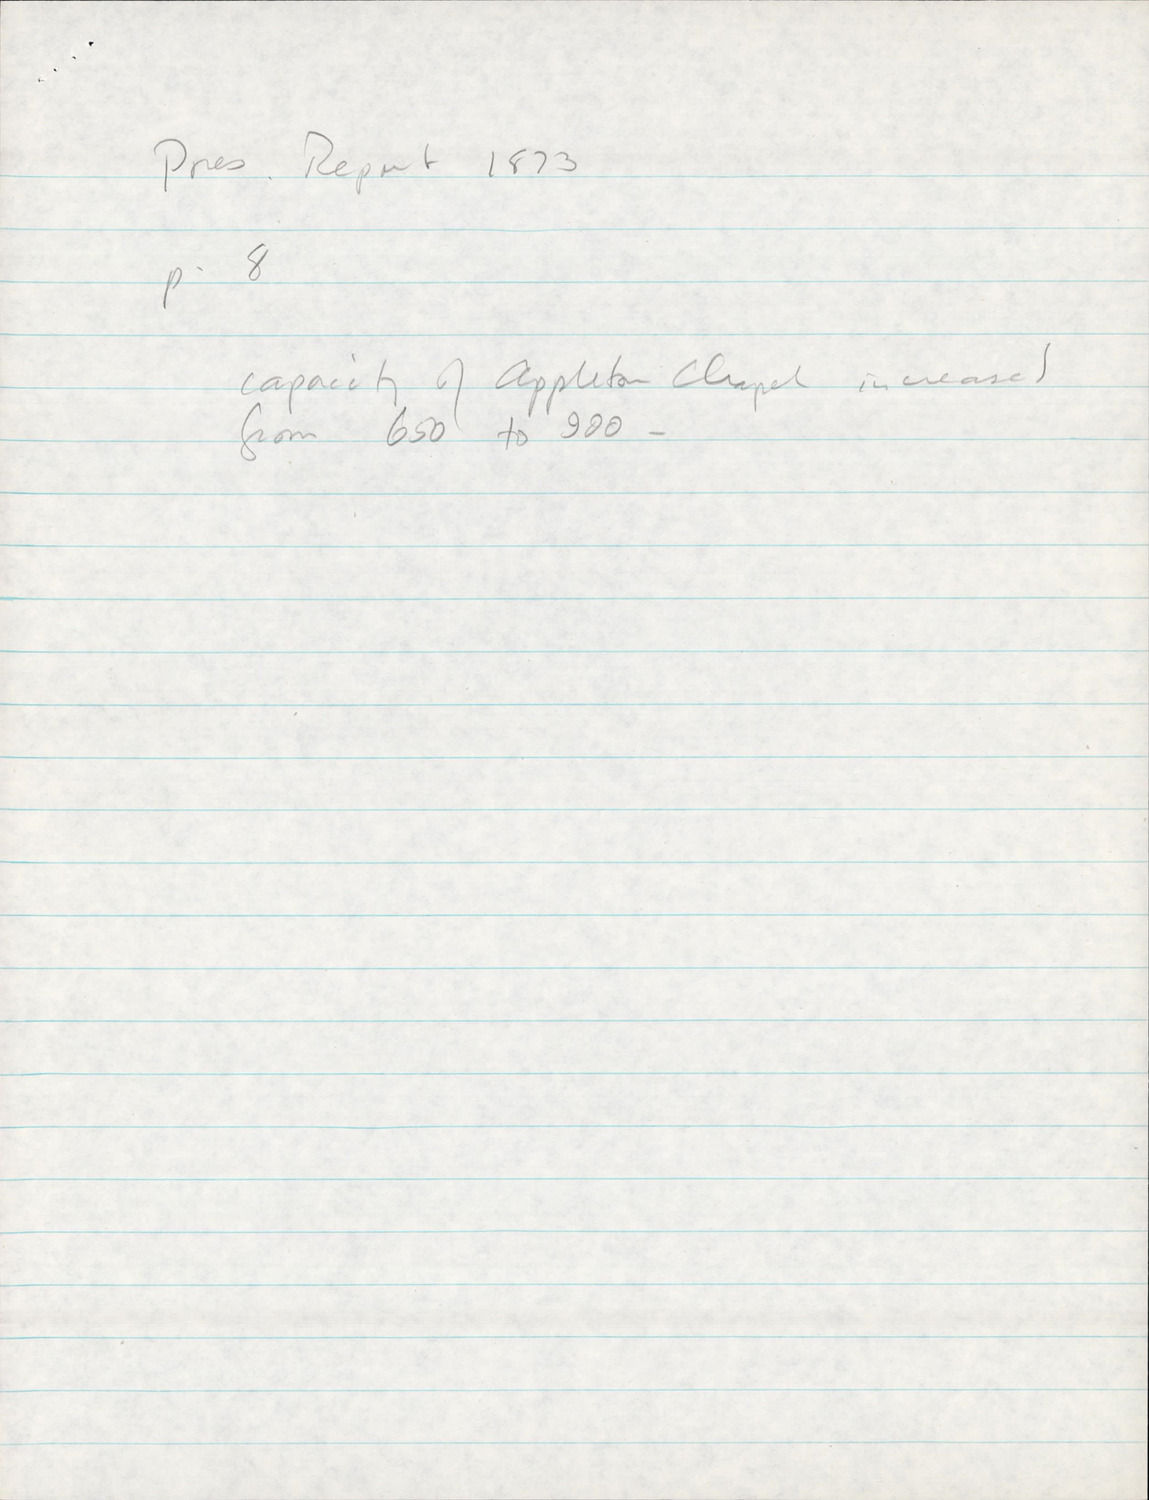 Pres. Report 1873
p. 8
capacity of Appleton Chapel increased
from 650 to 900 -